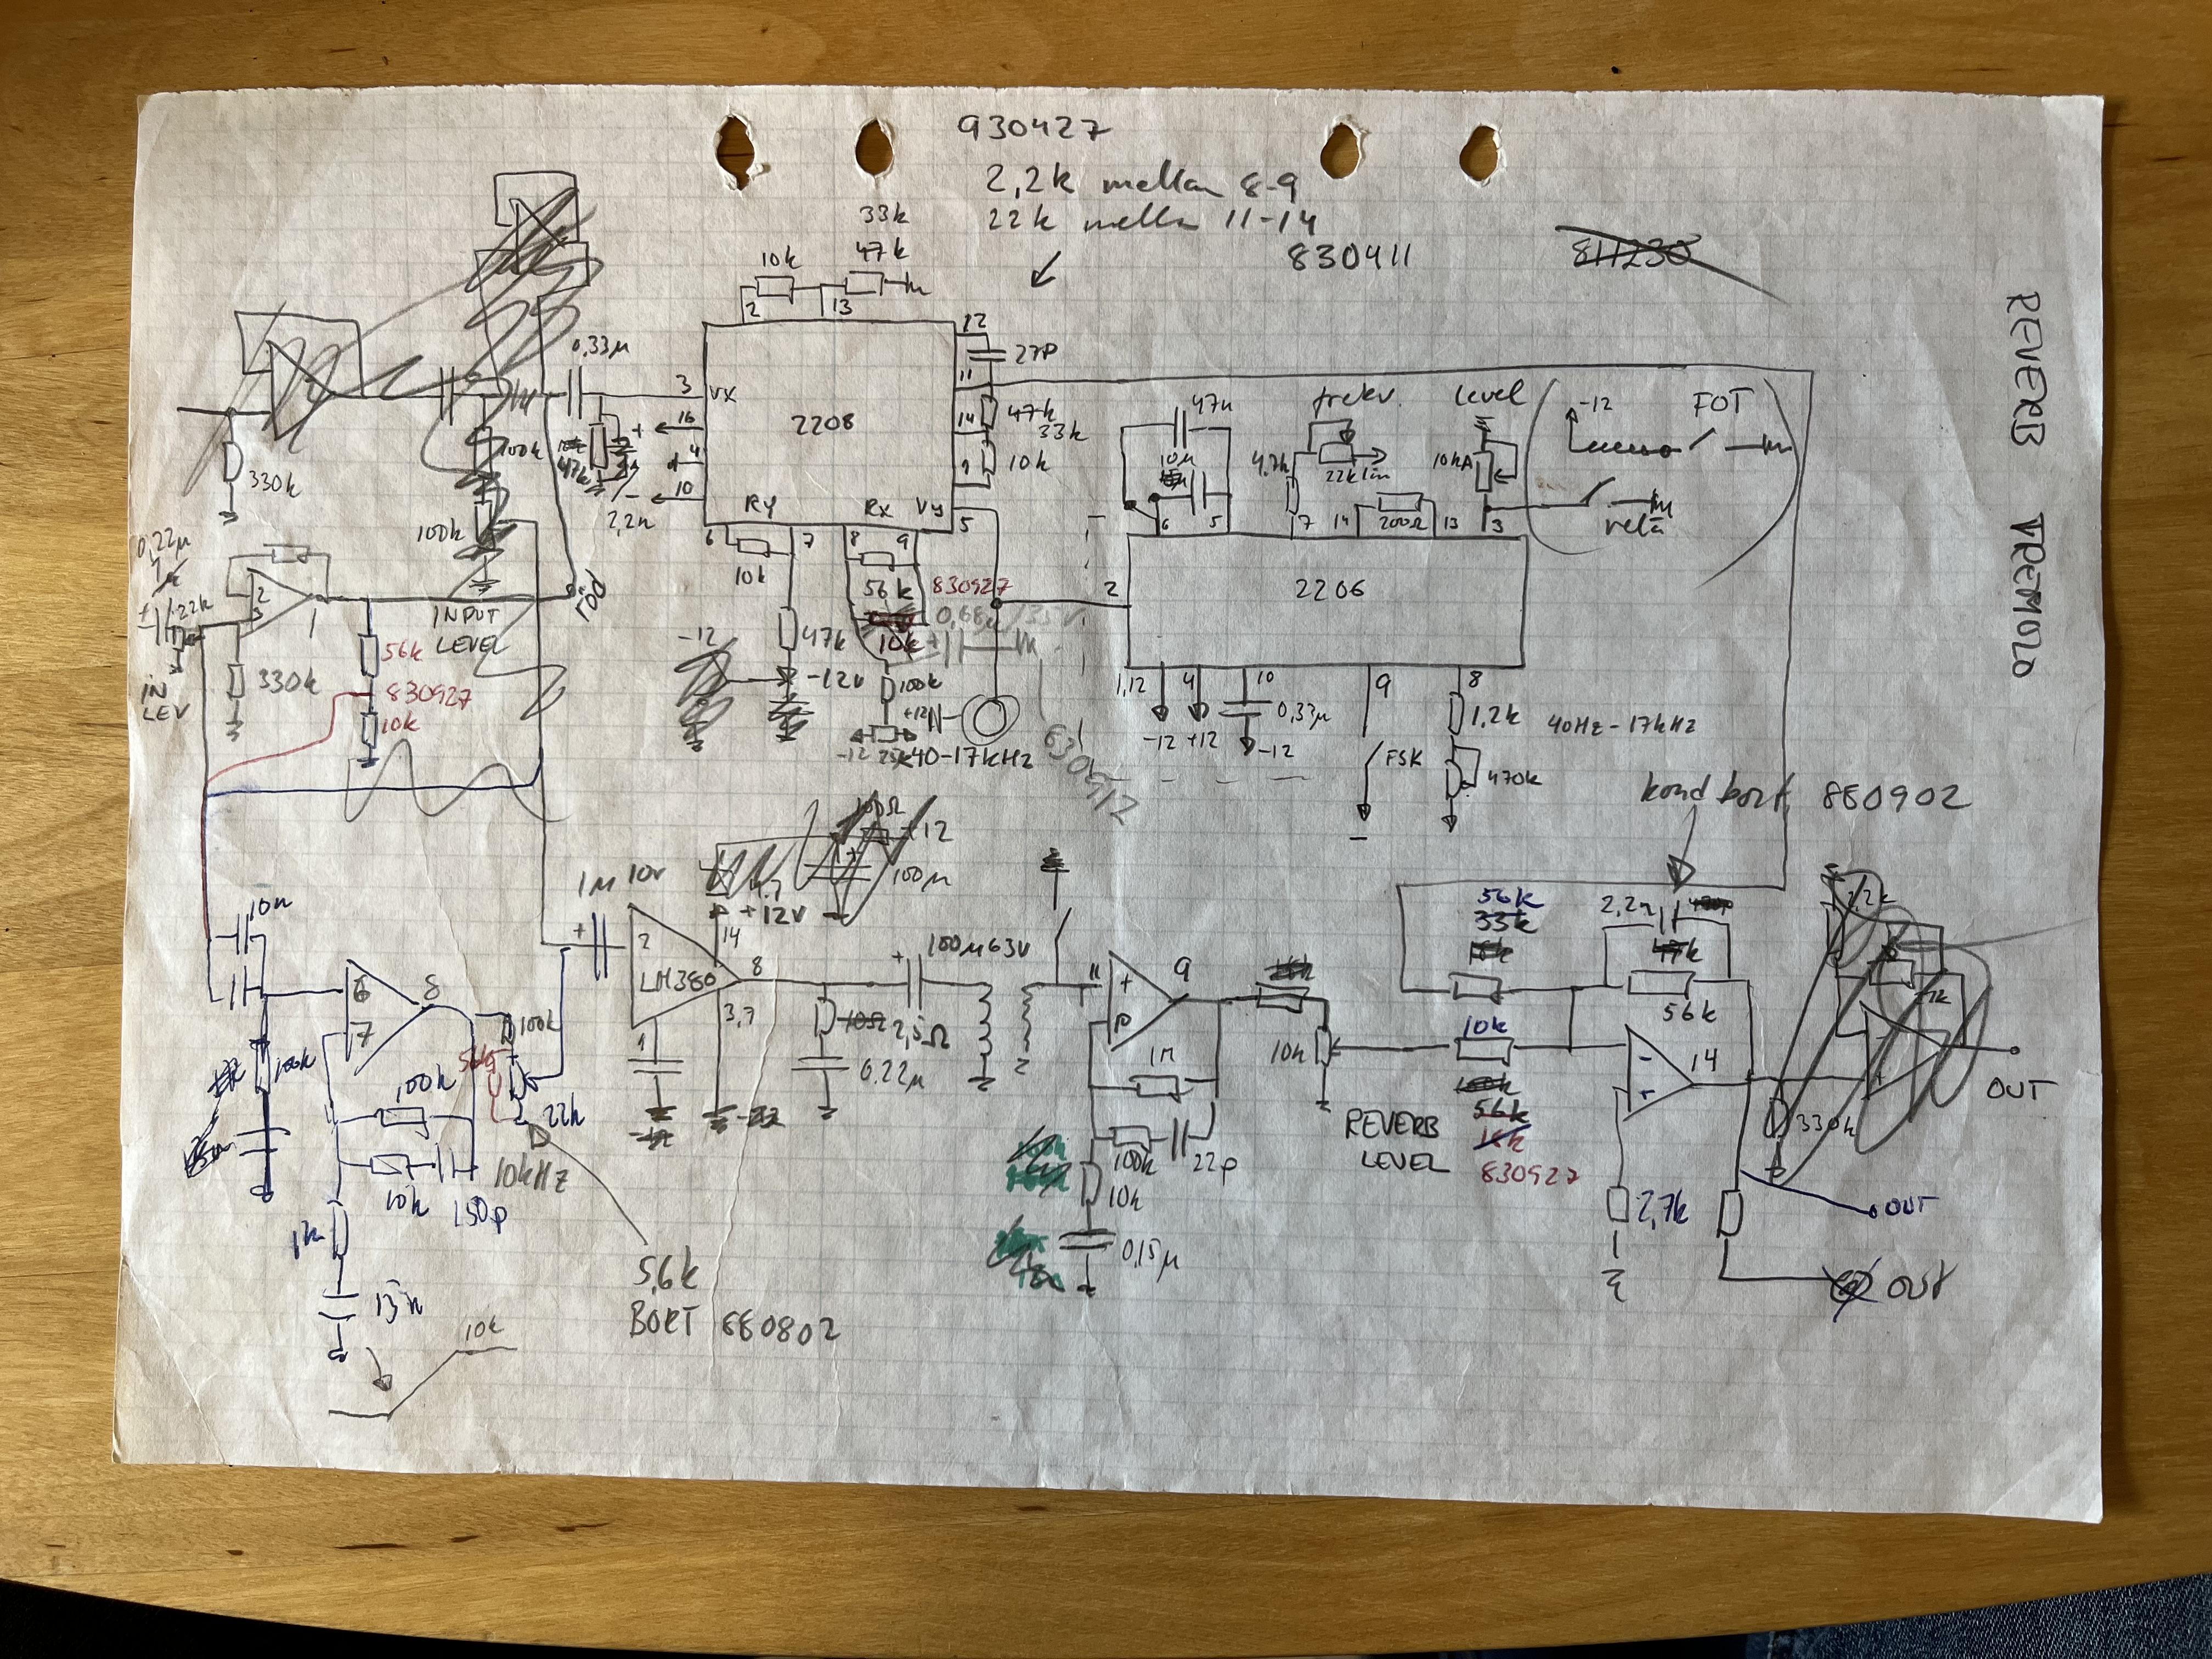 930427
2,2k mellan 8-9
22k mella 11-14
830411
811230
REVERB TREMOLO
33k
47k
10k
2
13
12
27p
11
14
47k
33k
10k
1
0,33µ
3
VX
16
4
10
2208
+
-
47k
2,2n
RY
RX
VY
5
6
7
8
9
10k
56k
830927
10k
47k
-12
-12V
100k
+12
-12
25k
40-17kHz
0,68µ
830912
330k
100k
100k
INPUT
LEVEL
röd
0,22µ
22k
2
3
1
IN
LEV
330k
56k
830927
10k
47n
10µ
6
5
frekv.
4,7k
22k lin
7
14
200Ω
13
Level
10kA
3
-12
FOT
relä
2
2206
1,12
4
10
9
8
-12
+12
0,33µ
-12
FSK
1,2k
40Hz-17kHz
470k
kond bort 880902
10n
6
7
8
100k
100k
100k
56k
22k
10k
150p
10kHz
1k
15n
10k
5,6k
BORT 880802
1µ 10V
+
2
LM380
14
+12V
8
3,7
1
100Ω
+12
100µ
4,7
+
100µ63V
10Ω
2,5Ω
0.22µ
11
+
10
9
1M
100k
22p
10k
0,15µ
10k
REVERB
LEVEL
56k
33k
10k
100k
56k
830927
2,2n
47k
56k
-
+
14
2,7k
2,2k
330k
OUT
OUT
OUT